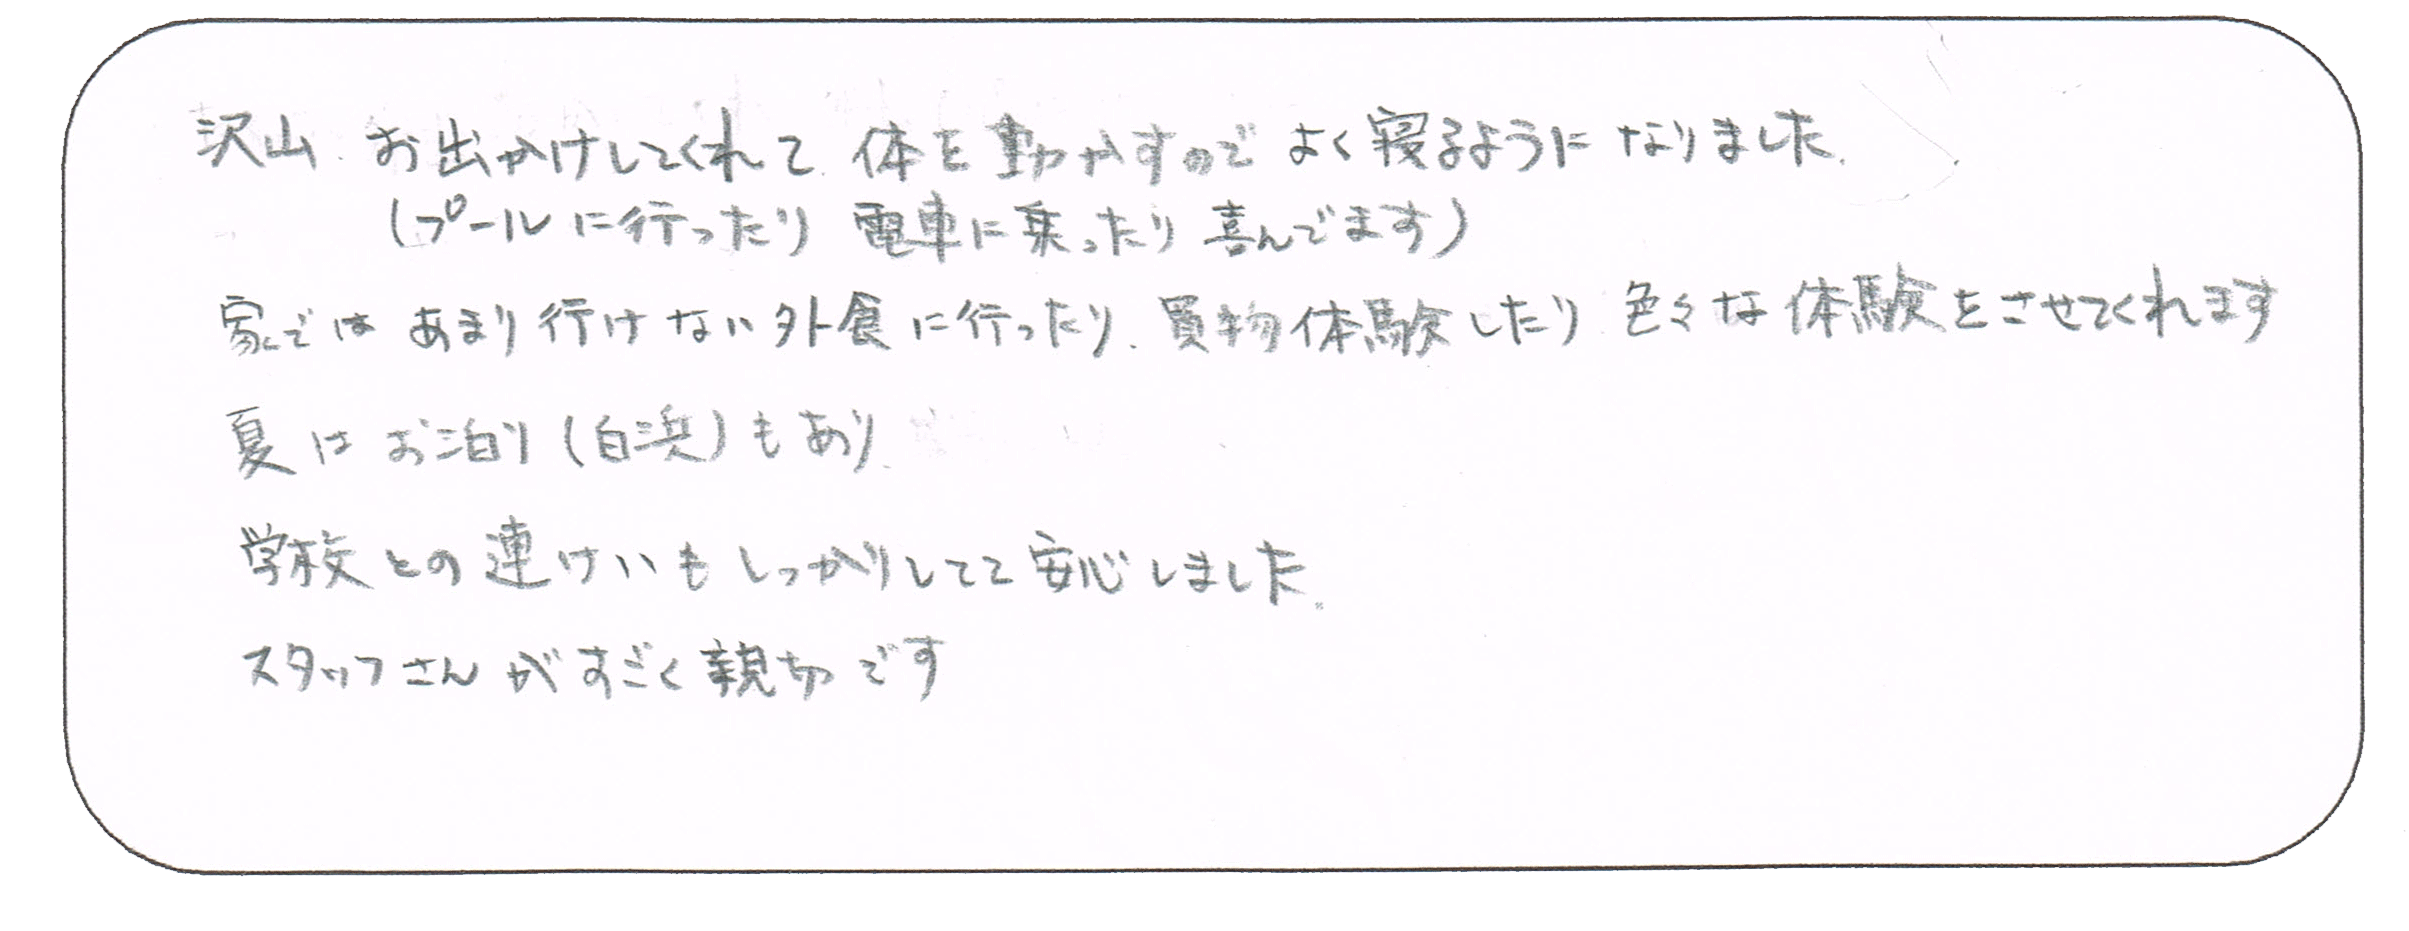 沢山、お出かけしてくれて、体を動かすので よく寝るように なりました。
(プールに行ったり 電車に乗ったり 喜んでます)
家では あまり行けない外食に行ったり、買物体験したり 色々な体験をさせてくれます
夏は お泊り(白浜)もあり、
学校との連けいも しっかりしてて 安心しました。
スタッフさんが すごく親切です